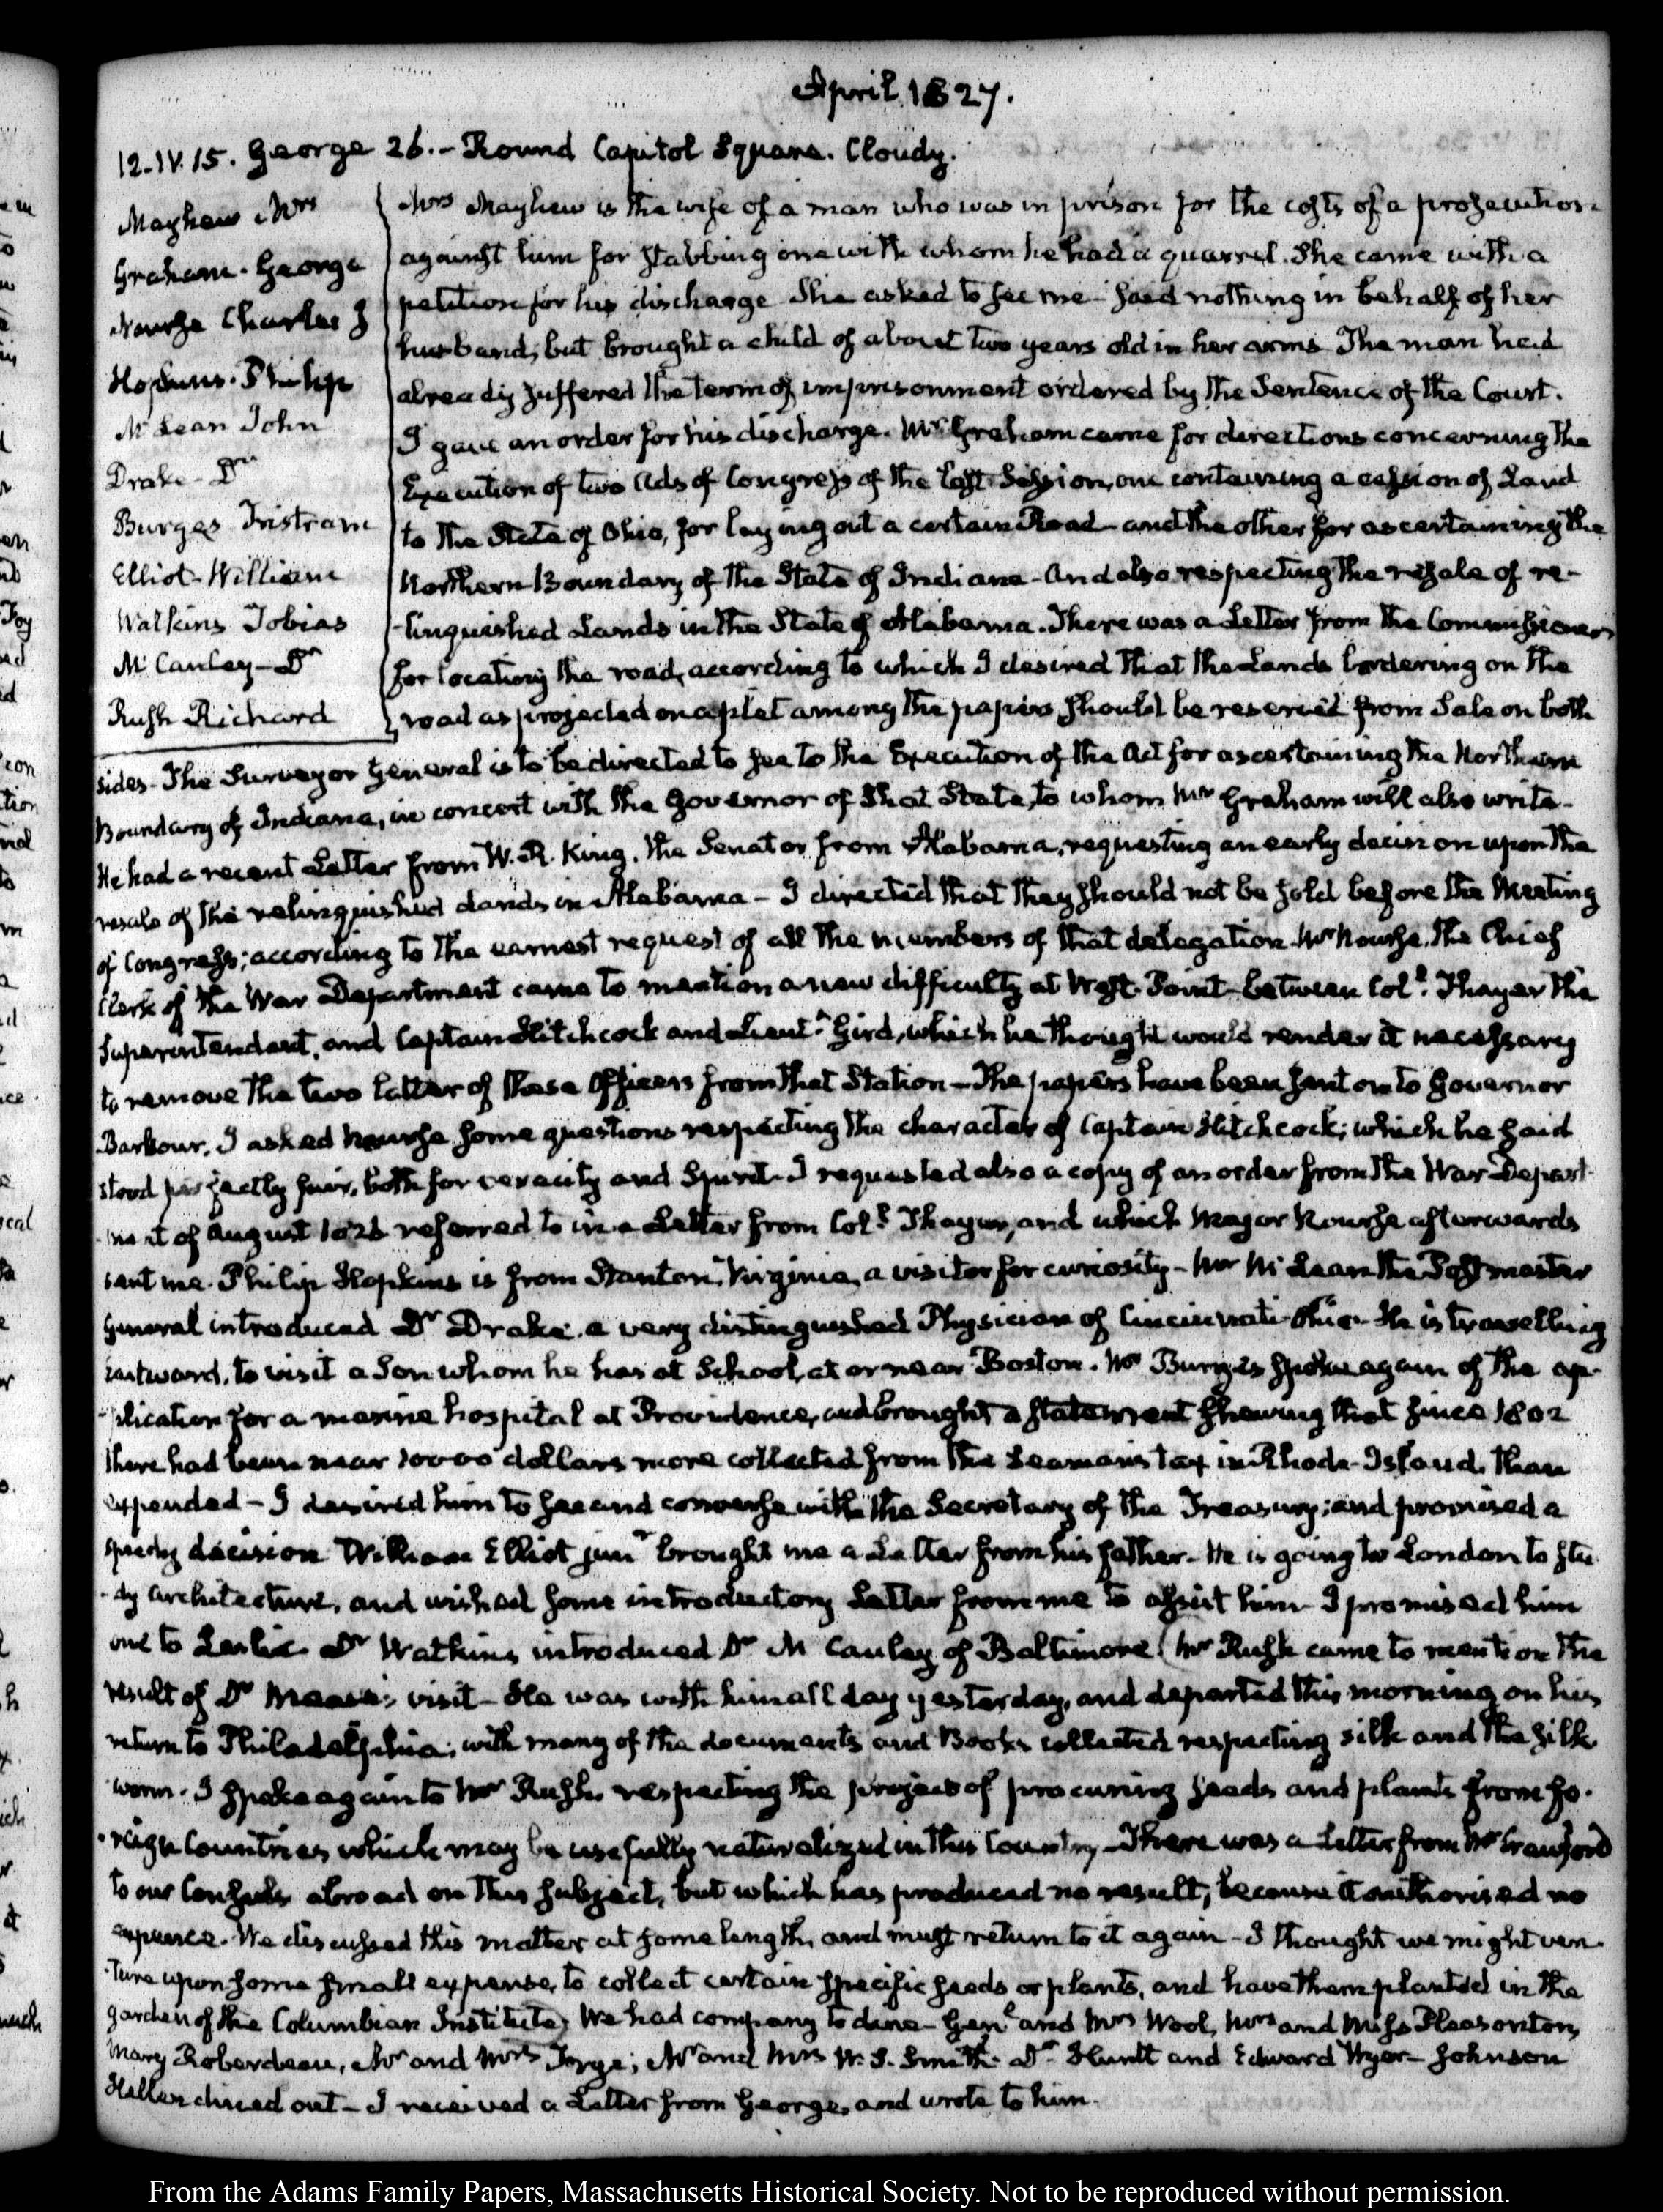 April 1827.
12. IV. 15. George 26. - Round Capitol Square. Cloudy.
Mayhew Mrs
Graham. George
Nourse Charles J
Hopkins. Philip
McLean John
Drake - Dr
Burges Tristram
Elliot - William
Watkins Tobias
McCauley - Dr
Rush Richard
Mrs Mayhew is the wife of a man who was in prison for the costs of a prosecution
against him for stabbing one with whom he had a quarrel. She came with a
petition for his discharge She asked to see me - said nothing in behalf of her
husband, but brought a child of about two years old in her arms The man had
already suffered the term of imprisonment ordered by the Sentence of the Court.
I gave an order for his discharge. Mr Graham came for directions concerning the
Execution of two Acts of Congress of the last Session, one containing a cession of Land
to the State of Ohio, for laying out a certain Road - and the other for ascertaining the
Northern Boundary of the State of Indiana - And also respecting the resale of re-
-linquished Lands in the State of Alabama. There was a Letter from the Commissioners
for locating the road, according to which I desired that the Lands bordering on the
road as projected on a plat among the papers should be reserved from Sale on both
sides - The Surveyor General is to be directed to see to the Execution of the Act for ascertaining the Northern
Boundary of Indiana, in concert with the Governor of that State, to whom Mr Graham will also write -
He had a recent Letter from W. R. King, the Senator from Alabama, requesting an early decision upon the
resale of the relinquished Lands in Alabama - I directed that they should not be sold before the Meeting
of Congress; according to the earnest request of all the members of that delegation. Mr Nourse, the Chief
Clerk of the War Department came to mention a new difficulty at West-Point - between Coll. Thayer the
Superintendant, and Captain Hitchcock and Lieutt Gird, which he thought would render it necessary
to remove the two latter of these Officers from that Station - The papers have been sent on to Governor
Barbour. I asked Nourse some questions respecting the character of Captain Hitchcock; which he said
stood perfectly fair, both for veracity and Spirit - I requested also a copy of an order from the War Depart-
-ment of August 1826 referred to in a Letter from Coll. Thayer, and which Major Nourse afterwards
sent me. Philip Hopkins is from Stanton, Virginia, a visitor for curiosity - Mr McLean the Postmaster
General introduced Dr Drake, a very distinguished Physician of Cincinnati Ohio - He is travelling
Eastward, to visit a Son whom he has at School, at or near Boston. Mr Burges spoke again of the ap-
-plication for a marine hospital at Providence, and brought a statement shewing that since 1802
there had been near 10000 dollars more collected from the Seaman's tax in Rhode-Island, than
expended - I desired him to see and converse with the Secretary of the Treasury; and promised a
speedy decision William Elliot junr brought me a Letter from his father - He is going to London to stu-
-dy architecture, and wished some introductory Letter from me to assist him - I promised him
one to Leslie Dr Watkins introduced Dr McCauley of Baltimore (Mr Rush came to mention the
result of Dr Mease's visit - He was with him all day yesterday, and departed this morning on his
return to Philadelphia; with many of the documents and Books collected respecting silk and the silk
worm. I spoke again to Mr Rush, respecting the project of procuring seeds and plants from fo-
-reign Countries which may be usefully naturalized in this Country - There was a Letter from Mr Crawford
to our Consuls abroad on this subject, but which has produced no result, because it authorised no
expence. We discussed this matter at some length, and must return to it again - I thought we might ven-
-ture upon some small expense, to collect certain specific seeds or plants, and have them planted in the
garden of the Columbian Institute) We had company to dine - Genl and Mrs Wool, Mrs and Miss Pleasonton,
Mary Roberdeau, Mr and Mrs Frye; Mr and Mrs W. S. Smith. Dr Huntt and Edward Wyer - Johnson
Hellen dined out - I received a Letter from George, and wrote to him.
From the Adams Family Papers, Massachusetts Historical Society. Not to be reproduced without permission.